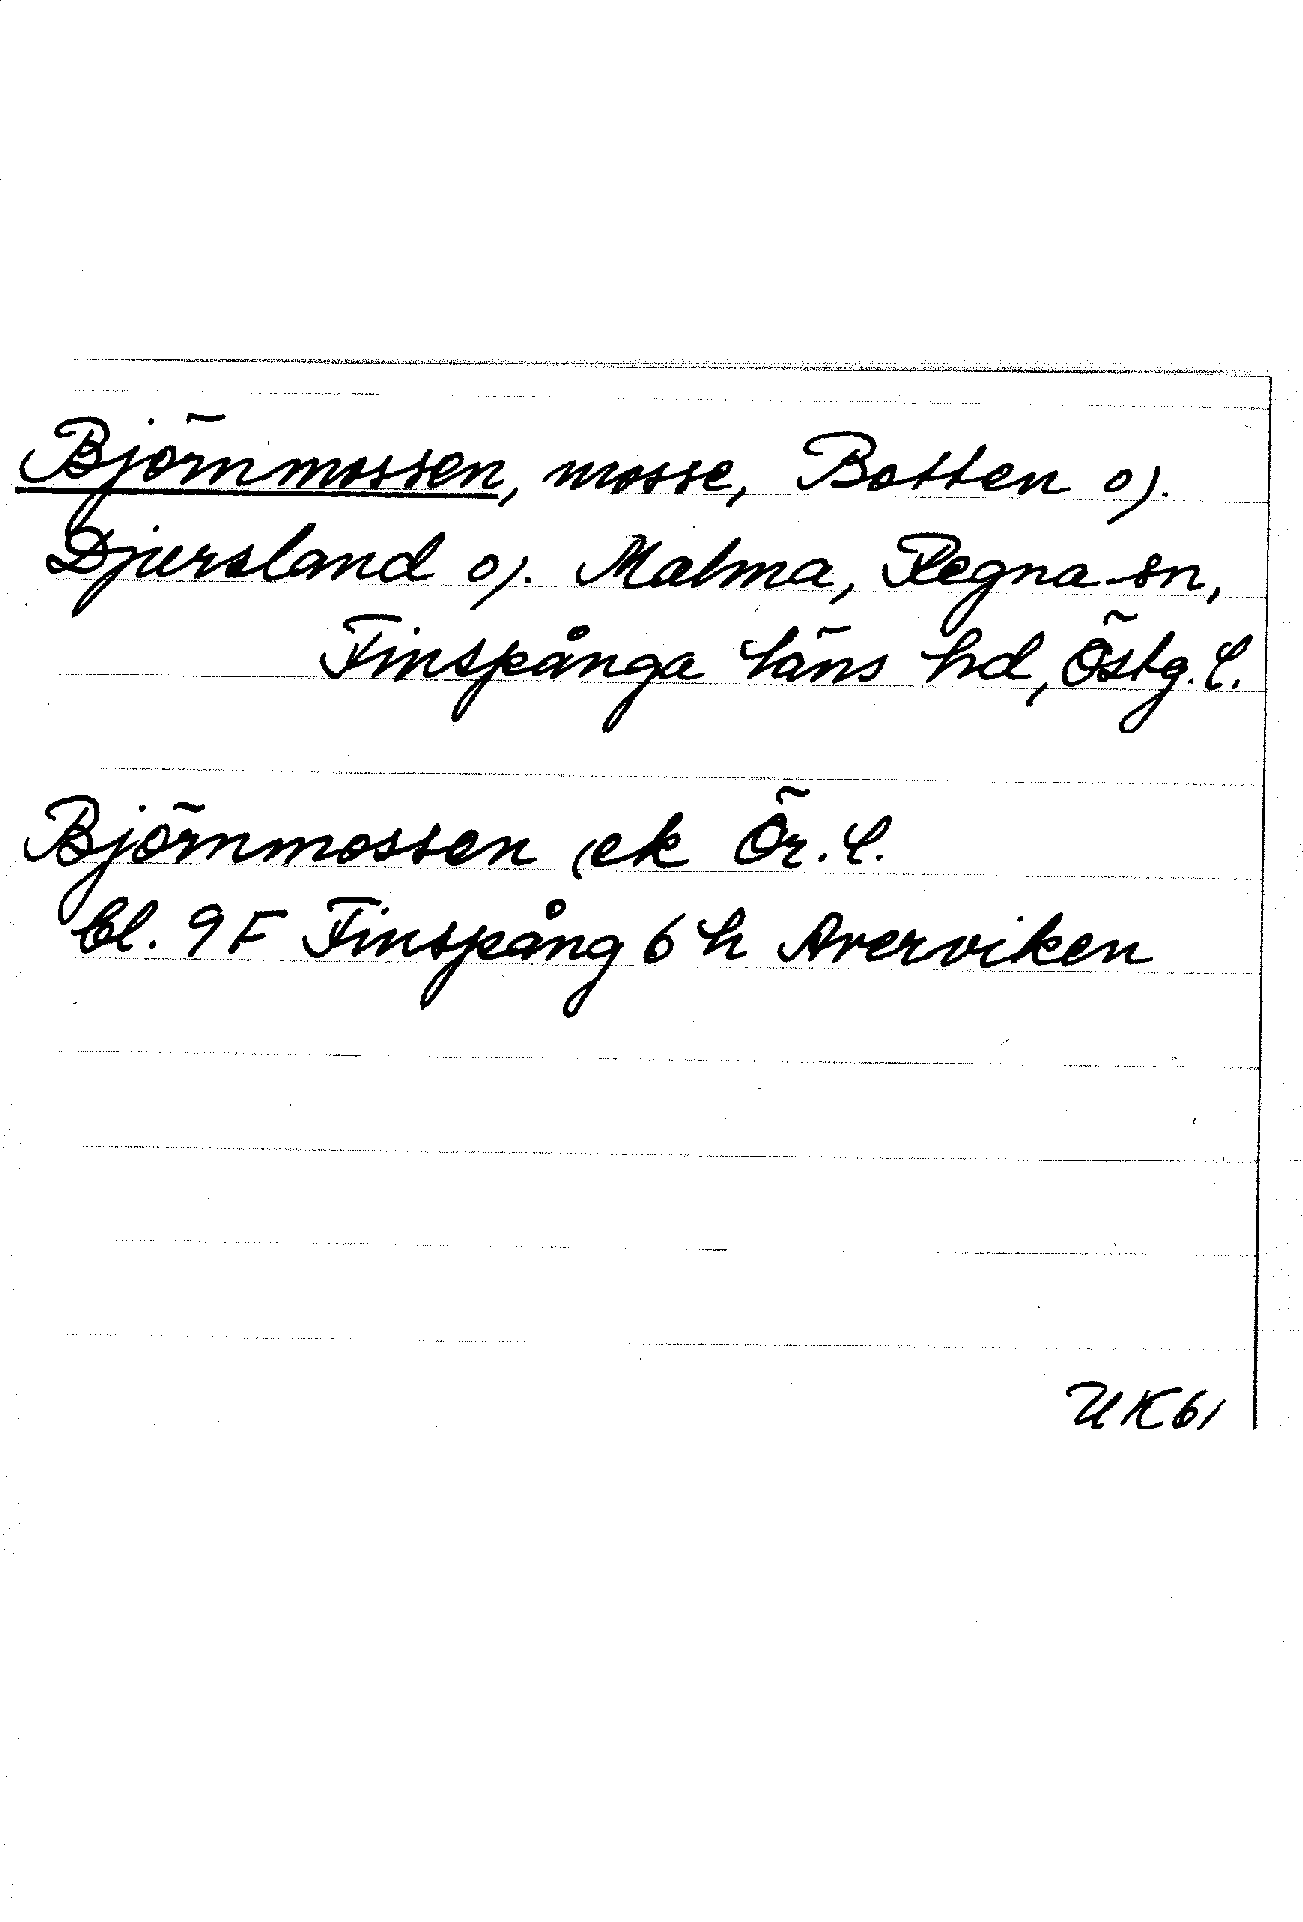 Björnmossen, mosse, Botten o).
Djursland o). Malma, Regna sn,
Finspånga läns hd, Östg. l.
Björnmossen, ek Ör. l.
bl. 9 F Finspång 6 h Averviken
UK61